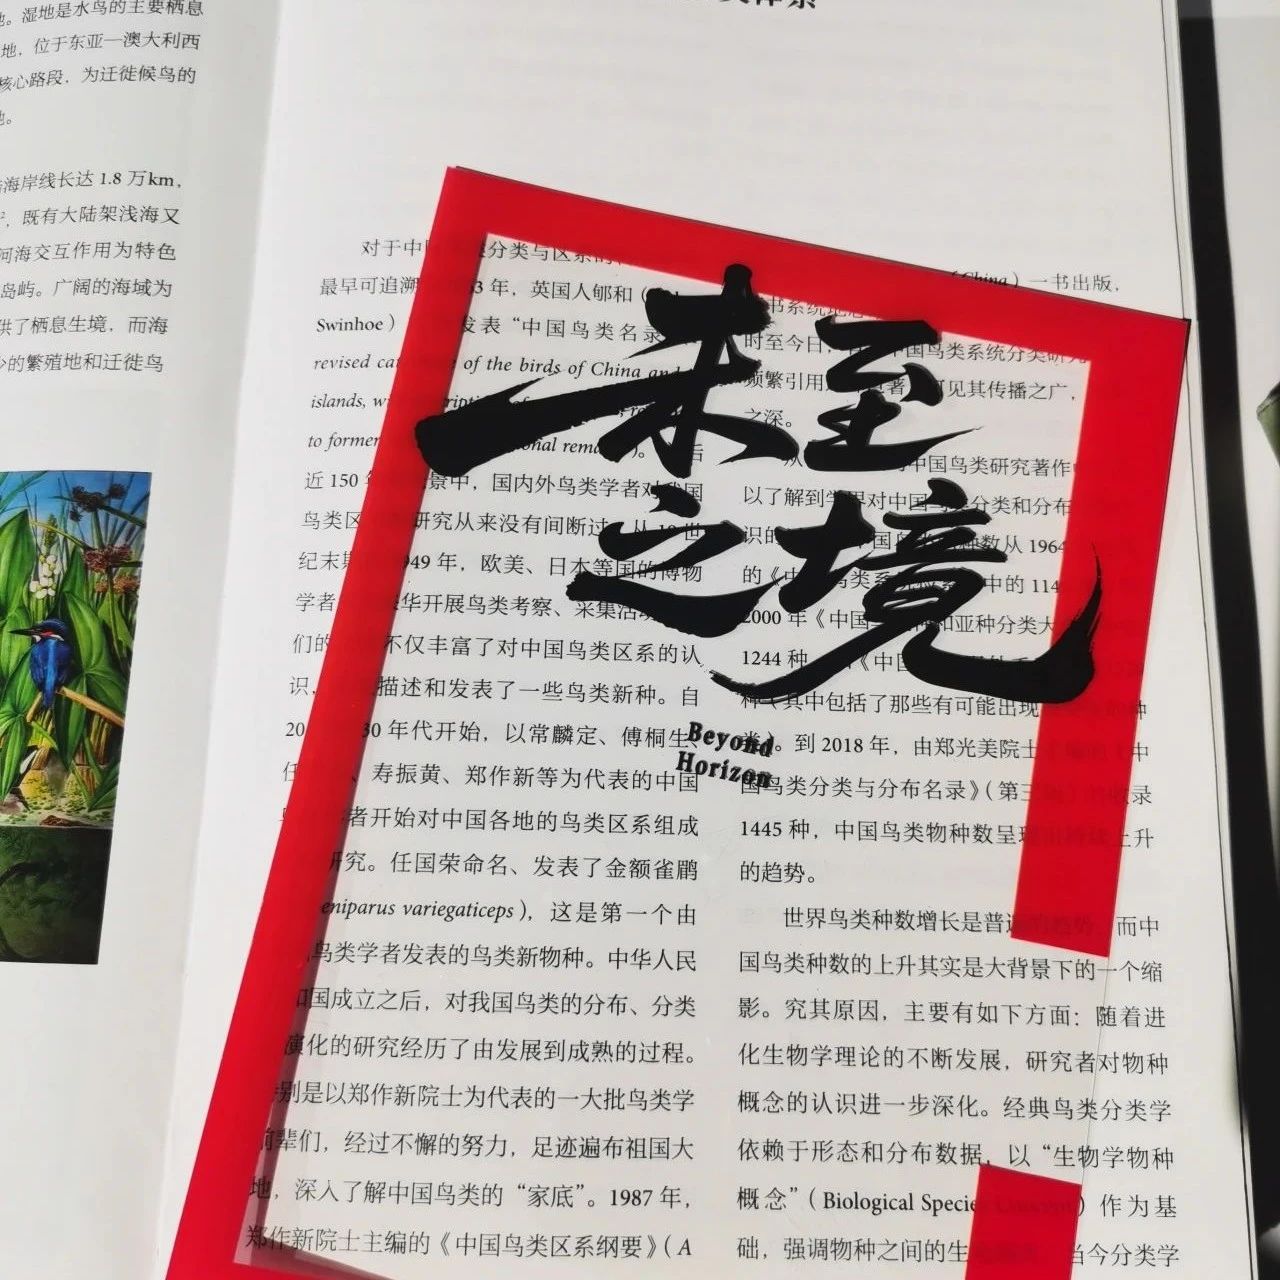 地。湿地是水鸟的主要栖息
地，位于东亚—澳大利西
核心路段，为迁徙候鸟的
地。
海岸线长达 1.8 万km，
既有大陆架浅海又
河海交互作用为特色
岛屿。广阔的海域为
供了栖息生境，而海
少的繁殖地和迁徙鸟
未至
之境
Beyond
Horizon
对于中 分类与区系的
最早可追溯 3 年，英国人郇和（
Swinhoe） 发表“中国鸟类名录
revised of the birds of China and
islands,
to former
近 150 年 景中，国内外鸟类学者对我国
鸟类区 研究从来没有间断过。从 19 世
纪末 949 年，欧美、日本等国的博物
学者 华开展鸟类考察、采集活
们的 不仅丰富了对中国鸟类区系的认
识， 描述和发表了一些鸟类新种。自
20 30 年代开始，以常麟定、傅桐生、
任 、寿振黄、郑作新等为代表的中国
者开始对中国各地的鸟类区系组成
研究。任国荣命名、发表了金额雀鹛
eniparus variegaticeps），这是第一个由
鸟类学者发表的鸟类新物种。中华人民
和国成立之后，对我国鸟类的分布、分类
演化的研究经历了由发展到成熟的过程。
特别是以郑作新院士为代表的一大批鸟类学
前辈们，经过不懈的努力，足迹遍布祖国大
地，深入了解中国鸟类的“家底”。1987 年，
郑作新院士主编的《中国鸟类区系纲要》（A
of China）一书出版，
书系统地
时至今日， 中国鸟类系统分类研究
频繁引用 著 可见其传播之广，
之深。
从 中国鸟类研究著作
以了解到学界对中国鸟类分类和分布
识的 国鸟 种数从 1964
的《中 鸟类系统检索 中的 114
2000 年《中国 种和亚种分类大
1244 种， 《中国
种（其中包括了那些有可能出现 种
类）。到 2018 年，由郑光美院士 《中
国鸟类分类与分布名录》（第三版） 收录
1445 种，中国鸟类物种数呈现出持续上升
的趋势。
世界鸟类种数增长是普遍的趋势，而中
国鸟类种数的上升其实是大背景下的一个缩
影。究其原因，主要有如下方面：随着进
化生物学理论的不断发展，研究者对物种
概念的认识进一步深化。经典鸟类分类学
依赖于形态和分布数据，以“生物学物种
概念”（Biological Species Concept）作为基
础，强调物种之间的生 当今分类学